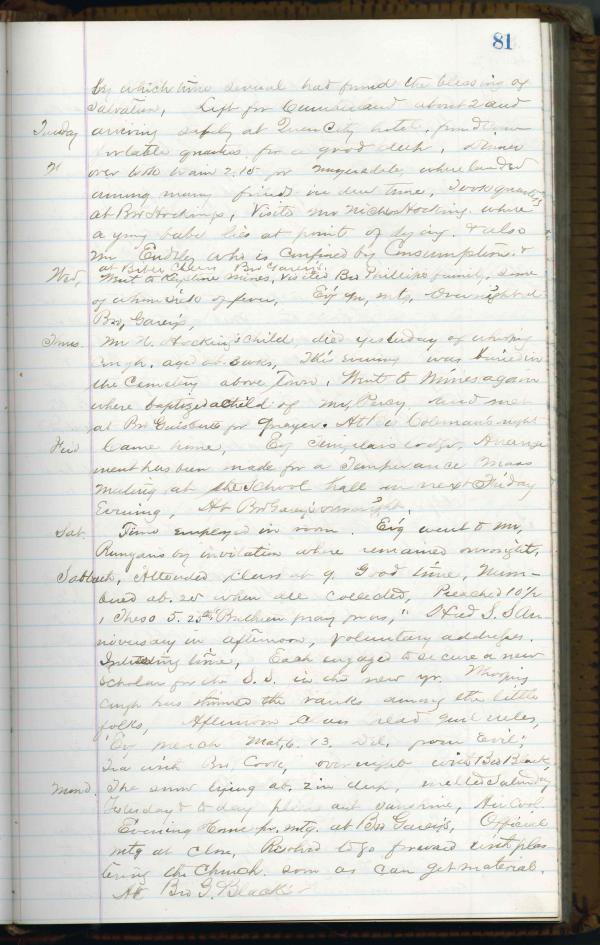 81
by which time several had found the blessing of
Salvation, Left for Cumberland about 2 and
Tuesday arriving safely at Queen City hotel, found
quarters for a good sleep,
over B&O RR 2.15 for where landed
among many friends in due time, Took quarters
at Bro Hockings, Visits Mr Nichs Hocking where
a yng babe lies at point of dying. & also
Mr Endley who is confined by Consumption, &
at Bro Garey's
Wed, Went to Mines, visited Bro Phillips family, some
of whom sick of fever, Ev'g pr, mtg, Overnight at
Bro, Garey's,
Thurs. Mr N. Hocking's child, died yesterday of whoop'g
cough. age ab. 3 wks, This evening was buried in
the Cemetery above Town. Went to Mines again
where baptized a child of Mr, Percy, and met
at Bro for prayer. At Coleman's night
Frid Came home, Ev'g Sinclairs lodge, Arrange
ment has been made for a Temperance Mass
Meeting at the School hall on next Friday
Evening, At Bro Garey's overnight,
Sat. Time employed in room. Ev'g went to Mr,
Rungans by invitation where remained overnight,
Sabbath, Attended Class at 9. Good time, Num-
bered ab. 20 when all collected, Preached 10½
1 Thess 5. 25th "Brethren pray for us," Had S. S An
niversary in afternoon, Voluntary addresses.
Interesting time, Each engaged to secure a new
Scholar for the S. S. in the new yr. Whoop'g
cough has thinned the ranks among the little
folks, Afternoon Class read Gen'l rules,
Ev'g preach Mat, 6. 13. Del. from Evil;
Tea with Bro. Cook, overnight with Bro Black,
Mond. The snow lying ab. 2 in deep, melted Saturday
Yesterday & to day pleasant sunshine, Air Cool
Evening Home pr. mtg. at Bro Garey's, Official
mtg at close, Resolved to go forward with plas
tering the Church. soon as can get material.
At Bro J. Black's